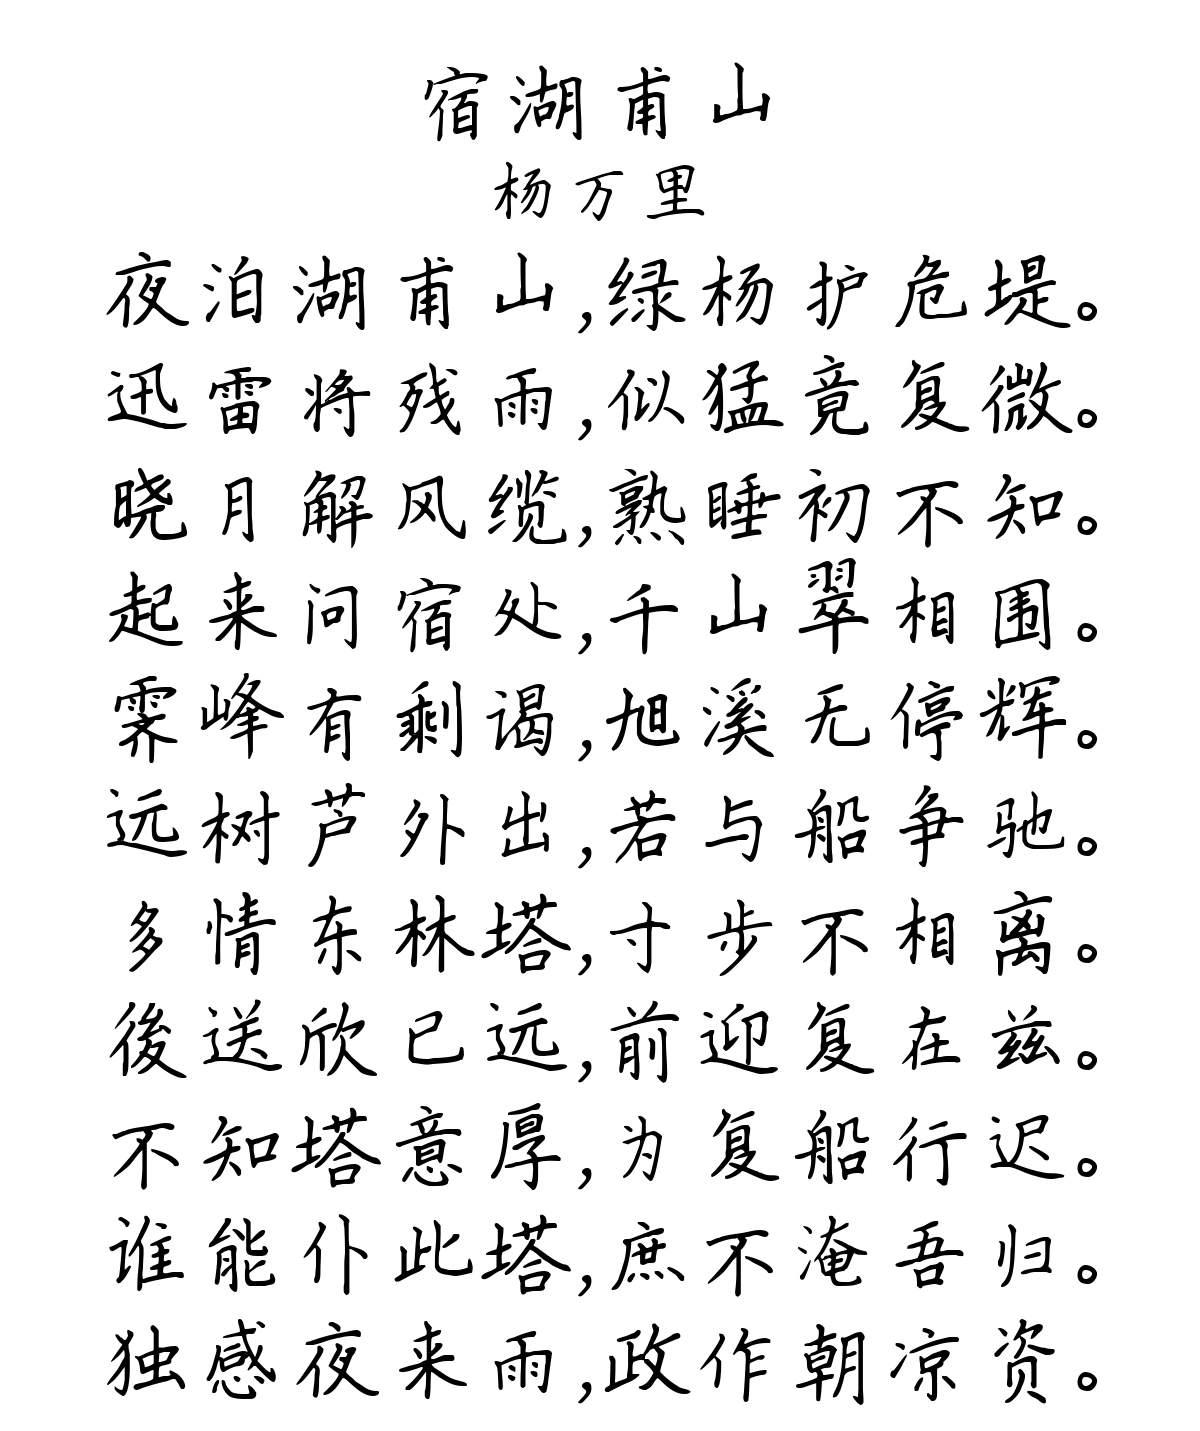 宿湖甫山
杨万里
夜泊湖甫山,绿杨护危堤。
迅雷将残雨,似猛竟复微。
晓月解风缆,熟睡初不知。
起来问宿处,千山翠相围。
霁峰有剩谒,旭溪无停辉。
远树芦外出,若与船争驰。
多情东林塔,寸步不相离。
後送欣已远,前迎复在兹。
不知塔意厚,为复船行迟。
谁能仆此塔,庶不淹吾归。
独感夜来雨,政作朝凉资。